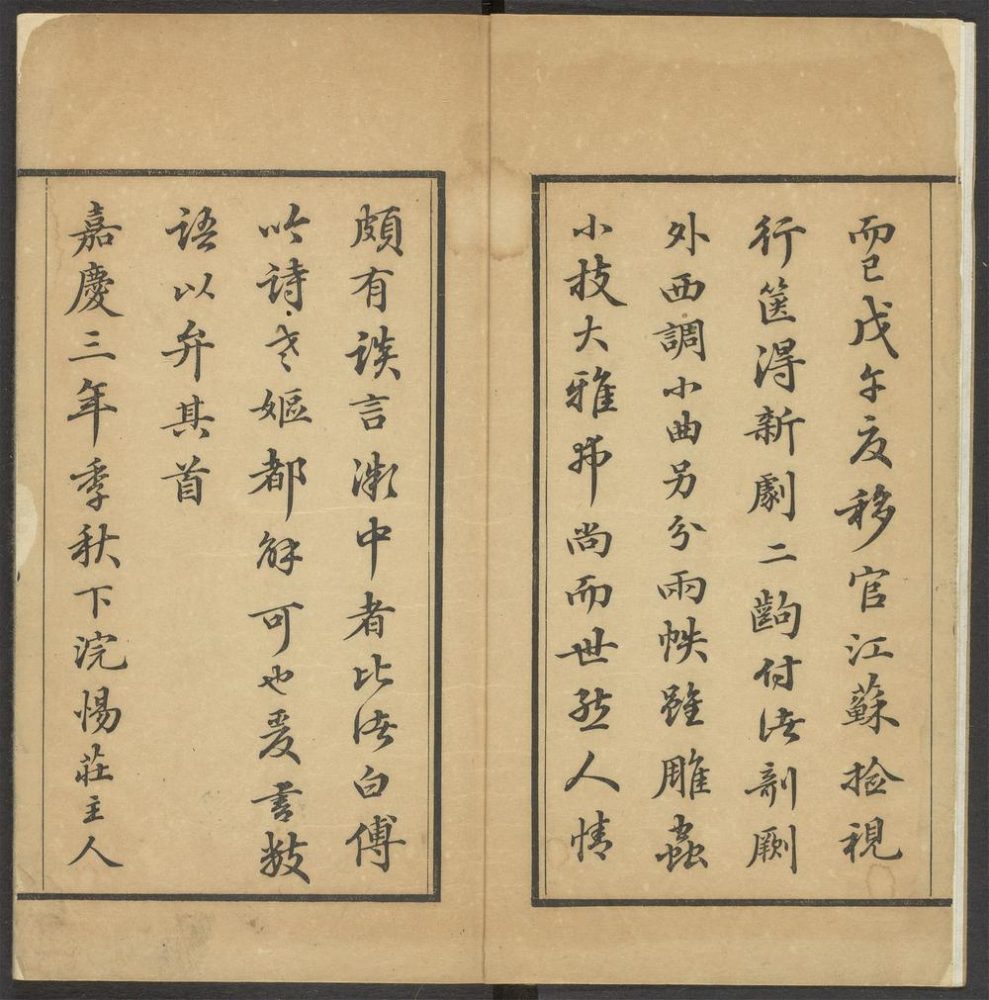 而已戊午夏移官江蘇撿視
行篋得新劇二齣付諸剞劂
外西調小曲另分兩帙雖雕蟲
小技大雅弗尚而世態人情
頗有談言微中者比諸白傅
吟詩老嫗都解可也爰書數
語以弁其首
嘉慶三年季秋下浣惕莊主人